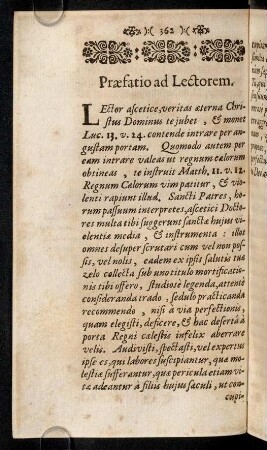 362
Præfatio ad Lectorem.
LEctor ascetice, veritas æterna Chri-
stus Dominus te jubet, & monet
Luc. 13. v. 24. contende intrare per an-
gustam portam. Quomodo autem per
eam intrare valeas ut regnum cælorum
obtineas, te instruit Matth. 11. v. 12.
Regnum Cælorum vim patitur, & vio-
lenti rapiunt illud. Sancti Patres, ho-
rum passuum interpretes, ascetici Docto-
res multa tibi suggerunt sanctæ hujus vi-
olentiæ media, & instrumenta: illa
omnes desuper scrutari cum vel non pos-
sis, vel nolis, eadem ex ipsi salutis tuæ
zelo collecta sub uno titulo mortificatio-
nis tibi offero, studiose legenda, attentè
consideranda trado, sedulo practicanda
recommendo, nisi à via perfectionis,
quam elegisti, deficere, & hac desertâ à
porta Regni cælestis infelix aberrare
velis. Audivisti, spectasti, vel expertus
ipse es, qui labores suscipiantur, quæ mo-
lestiæ sufferantur, quæ pericula etiam vi-
tæ adeantur à filiis hujus sæculi, ut con-
cupi-